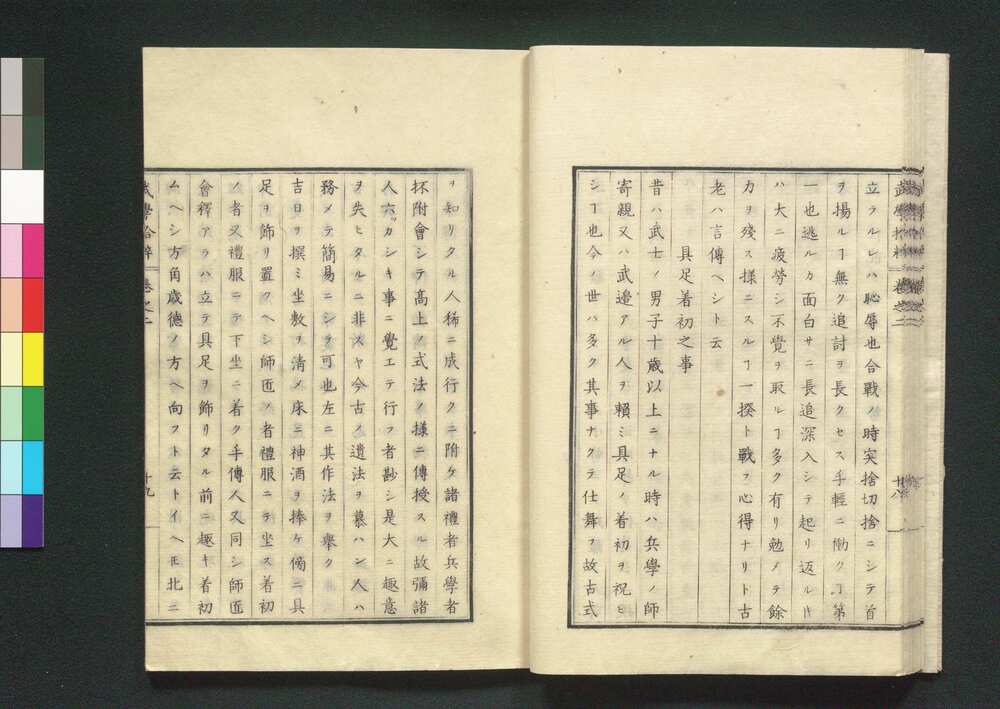 立ラルレハ恥辱也合戰ノ時突捨切捨ニシテ首
ヲ揚ルヿ無ク追討ヲ長クセス手輕ニ働クヿ第
一也逃ルカ面白サニ長追深入シテ起リ返ル𪜈
ハ大ニ疲勞シ不覺ヲ取ルヿ多ク有リ勉メテ餘
力ヲ殘ス樣ニスルヿ一揆ト戰フ心得ナリト古
老ハ言傳ヘシト云
具足着初之事
昔ハ武士ノ男子十歳以上ニナル時ハ兵學ノ師
寄親又ハ武邉アル人ヲ賴ミ具足ノ着初ヲ祝ヒ
シヿ也今ノ世ハ多ク其事ナクテ仕舞フ故古式
ヲ知リタル人稀ニ成行クニ附ケ諸禮者兵學者
抔附會シテ高上ノ式法ノ樣ニ傳授スル故彌諸
人六カシキ事ニ覺エテ行フ者尠シ是大ニ趣意
ヲ失ヒタルニ非スヤ今古ノ遺法ヲ慕ハン人ハ
務メテ簡易ニシテ可也左ニ其作法ヲ擧ク
吉日ヲ撰ミ坐敷ヲ淸メ床ニ神酒ヲ捧ケ傍ニ具
足ヲ飾リ置クヘシ師匠ノ者禮服ニテ坐ス着初
ノ者又禮服ニテ下坐ニ着ク手傳人又同シ師匠
會釋アラハ立テ具足ヲ飾リタル前ニ趣キ着初
ムヘシ方角歳德ノ方ヘ向フト云トイヘ𪜈北ニ
卷之二
十九